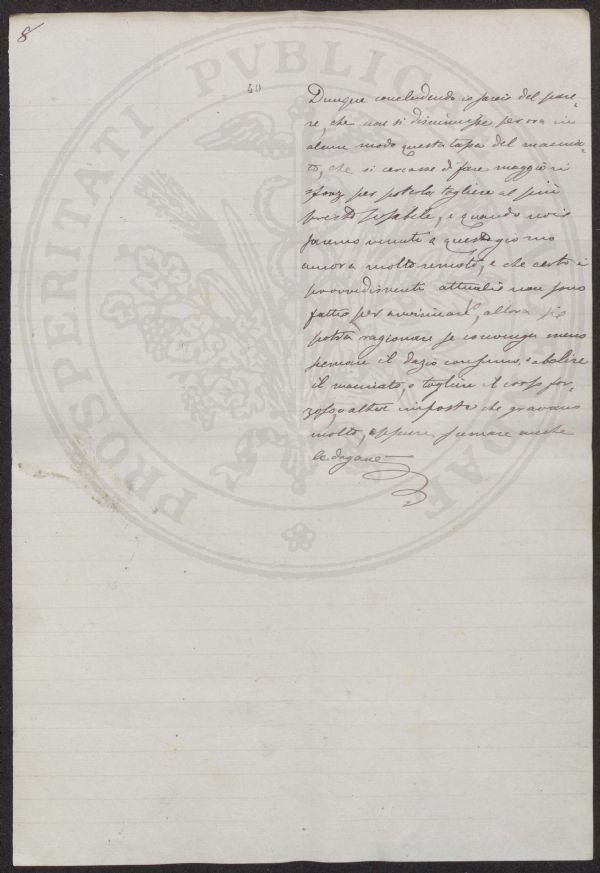 8
40
Dunque concludendo io sarei del pare-
re, che non si diminuisse per ora in
alcun modo questa tassa del macina-
to, che si cercasse di fare maggiori
sforzi per poterla togliere al più
presto possibile, e quando noi
saremo venuti a questo giorno
ancora molto remoto, e che certo i
provvedimenti attuali non sono
fatti per avvicinarlo, allora si
potrà ragionare se convenga meno
scemare il dazio consumo, o abolire
il macinato, o togliere il corso for-
zoso, o altre imposte che gravano
molto, oppure scemare anche
le dogane
PROSPERITATI PVBLICAE